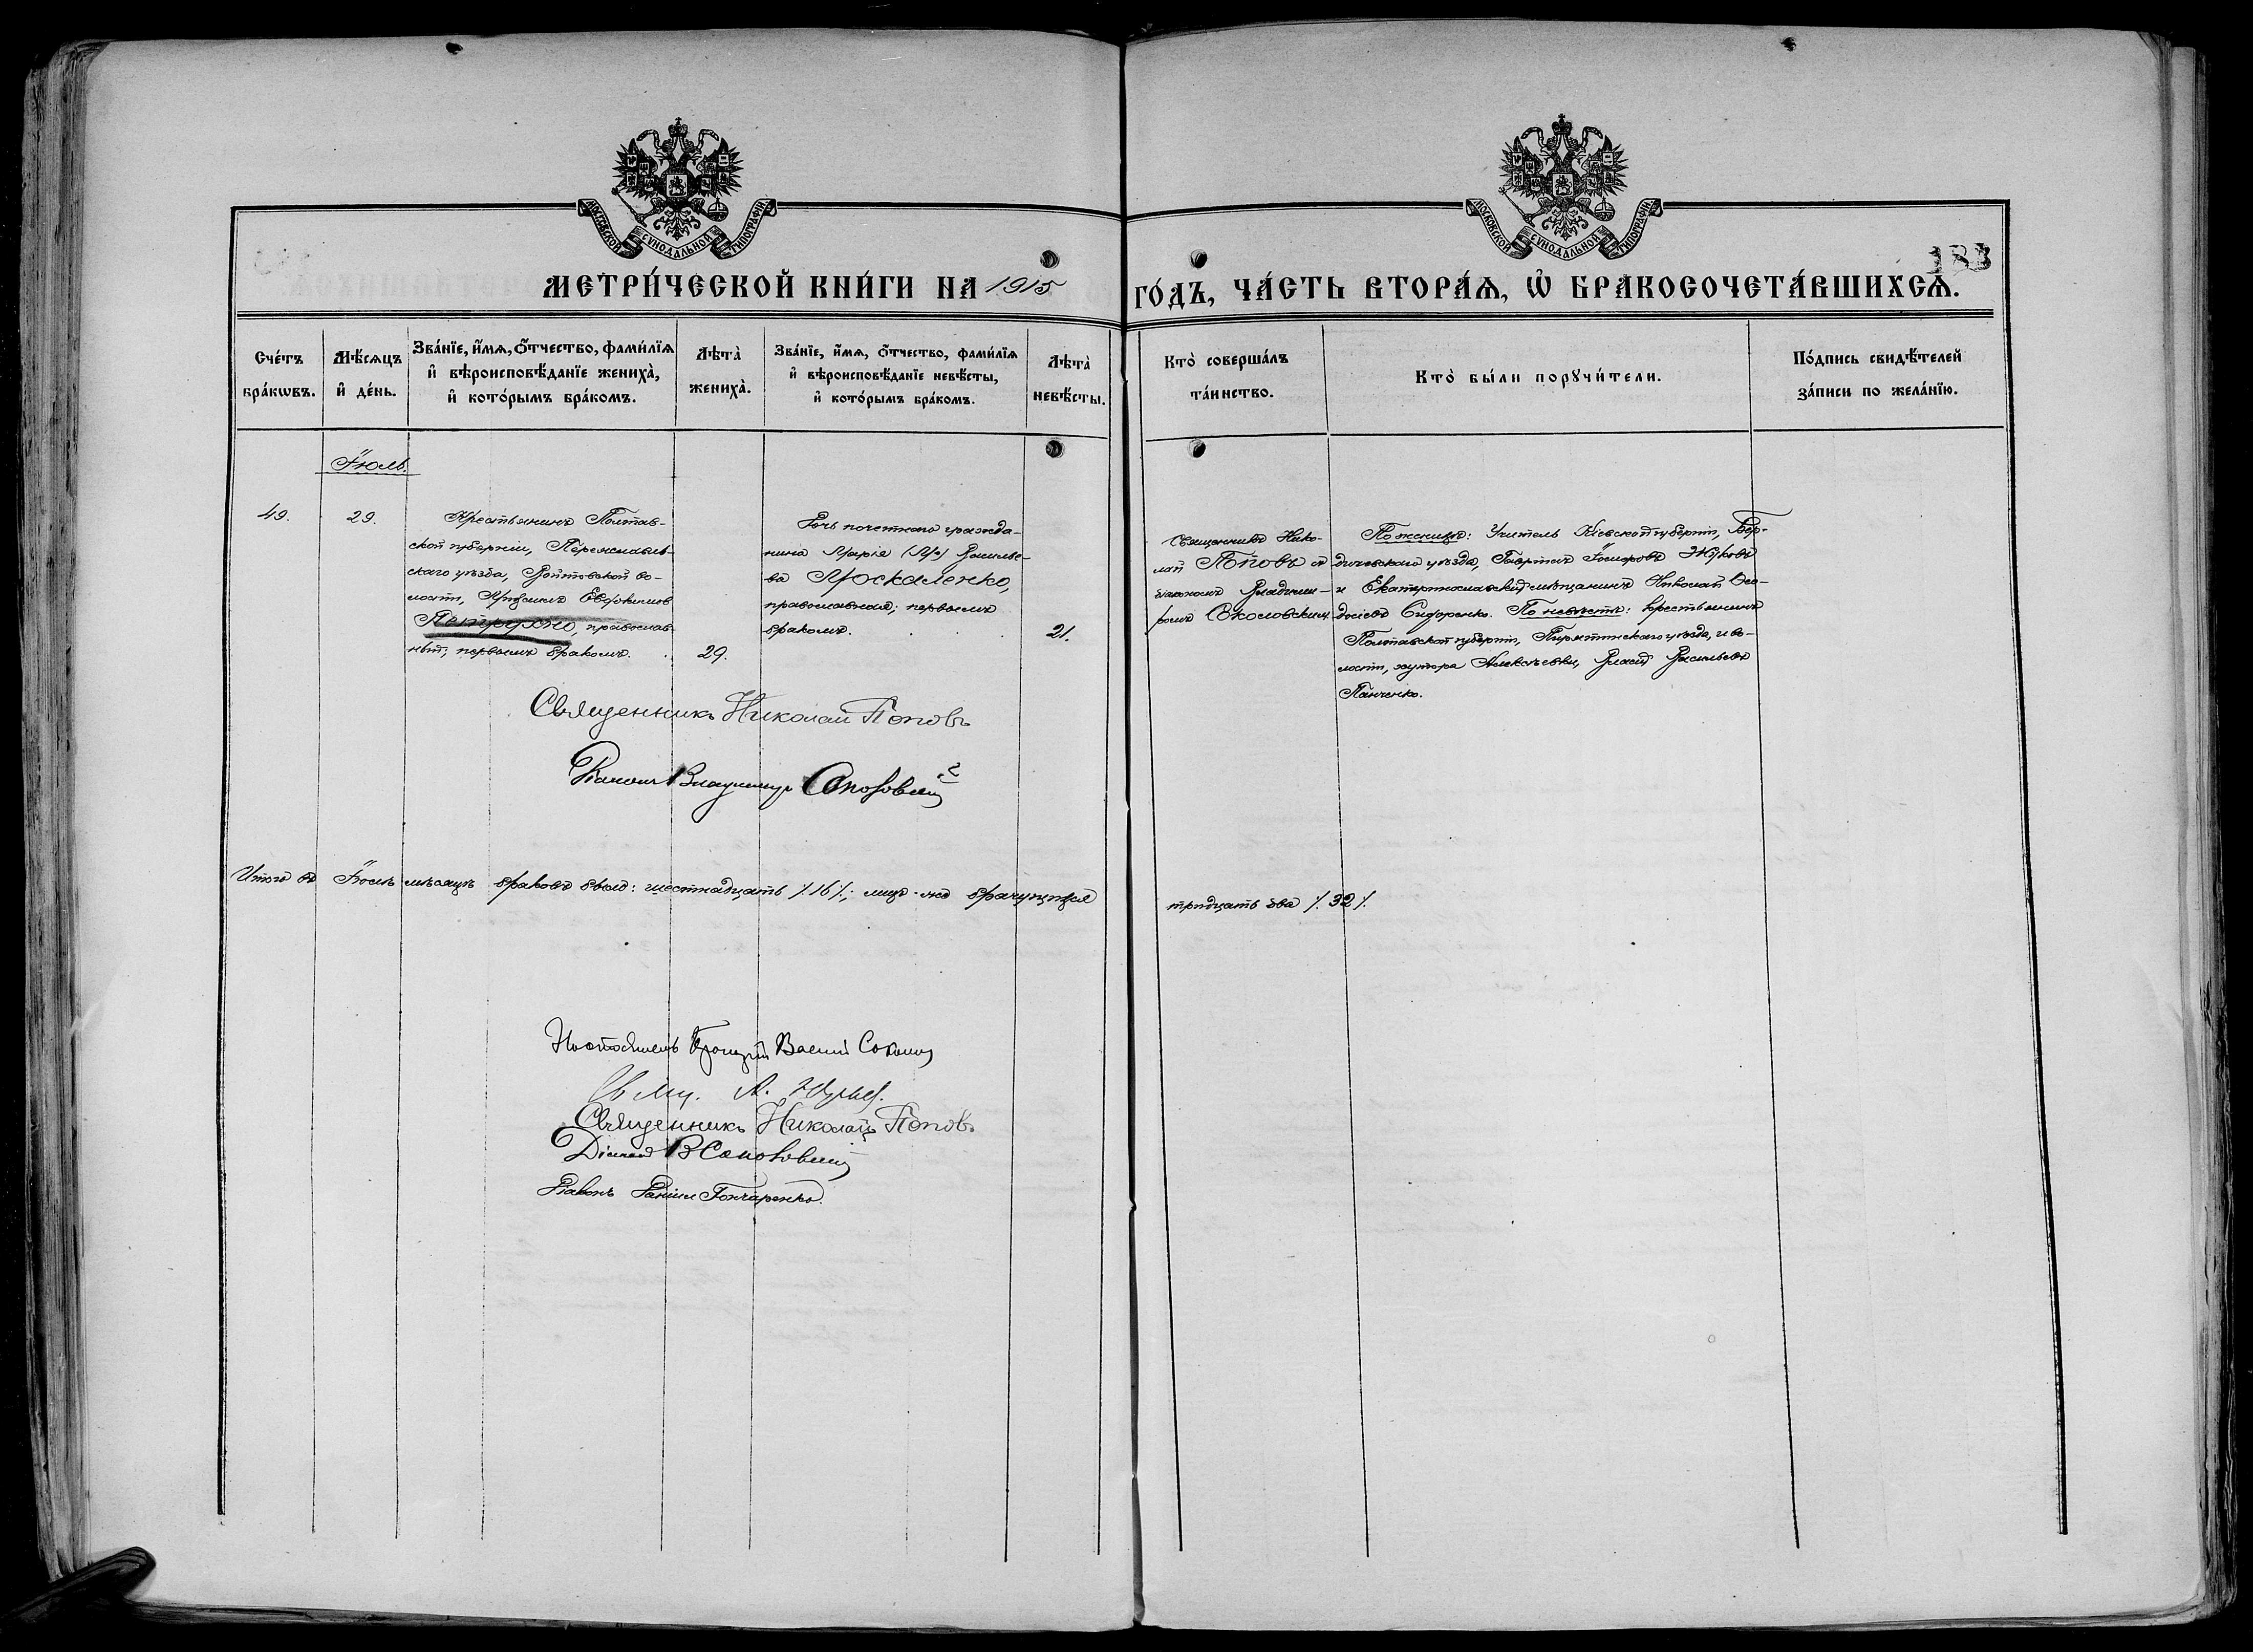 МОСКОВСКОЙ СѴНОДАЛЬНОЙ ТИПОГРАФІИ
МОСКОВСКОЙ СѴНОДАЛЬНОЙ ТИПОГРАФІИ
183
МЕТРИ́ЧЕСКОЙ КНИ́ГИ НА 1915
ГО́ДЪ, ЧА́СТЬ ВТОРА́Ѧ, Ѡ҆ БРАКОСОЧЕТА́ВШИХСѦ.
Сче́тъ
бра́кѡвъ.
Мѣ́сѧцъ
и҆ де́нь.
Зва́нїе, и҆́мѧ, ѻ҆́тчество, фами́лїѧ
и҆ вѣроисповѣ́данїе жениха̀,
и҆ кото́рымъ бра́комъ.
Лѣта̀
жениха̀.
Зва́нїе, и҆́мѧ, ѻ҆́тчество, фами́лїѧ
и҆ вѣроисповѣ́данїе невѣ́сты,
и҆ кото́рымъ бра́комъ.
Лѣта̀
невѣ́сты.
Кто̀ соверша́лъ
та́инство.
Кто̀ бы́ли порꙋчи́тели.
По́дпись свидѣ́телей
за́писи по жела́нїю.
Іюль.
49.
29.
Крестьянинъ Полтав-
ской губерніи, Переяславль-
скаго уѣзда, Войтовской во-
лости, Евфиміевъ
Петрухно, православ-
ный, первымъ бракомъ.
29.
Дочь почетнаго гражда-
нина Марія (М) Васильe-
ва Москаленко,
православная; первымъ
бракомъ.
21.
Священникъ Нико-
лай Поповъ съ
діакономъ Владими-
ромъ Соколовскимъ
По женихѣ: Учитель Кіевской губерніи, Бер-
дичевскаго уѣзда, Гавріилъ Жуковъ
и Екатеринославскій мѣщанинъ Николай Ѳео-
досіевъ Сидоренко. По невѣстѣ: крестьянинъ
Полтавской губерніи, Пирятинскаго уѣзда, и во-
лости, хутора Алексѣевки, Власій Васильевъ
Панченко.
Священникъ Николай Поповъ
Діаконъ Владимиръ Соколовскій
Итого въ Іюлѣ мѣсяцѣ браковъ было: шестнадцать /.16./; лицъ же брачущихся
тридцать два /.32./.
Настоятель Протоіерей Василій
Священникъ Николай Поповъ
Діаконъ В Соколовскій
Діаконъ Даніилъ Гончаренко.